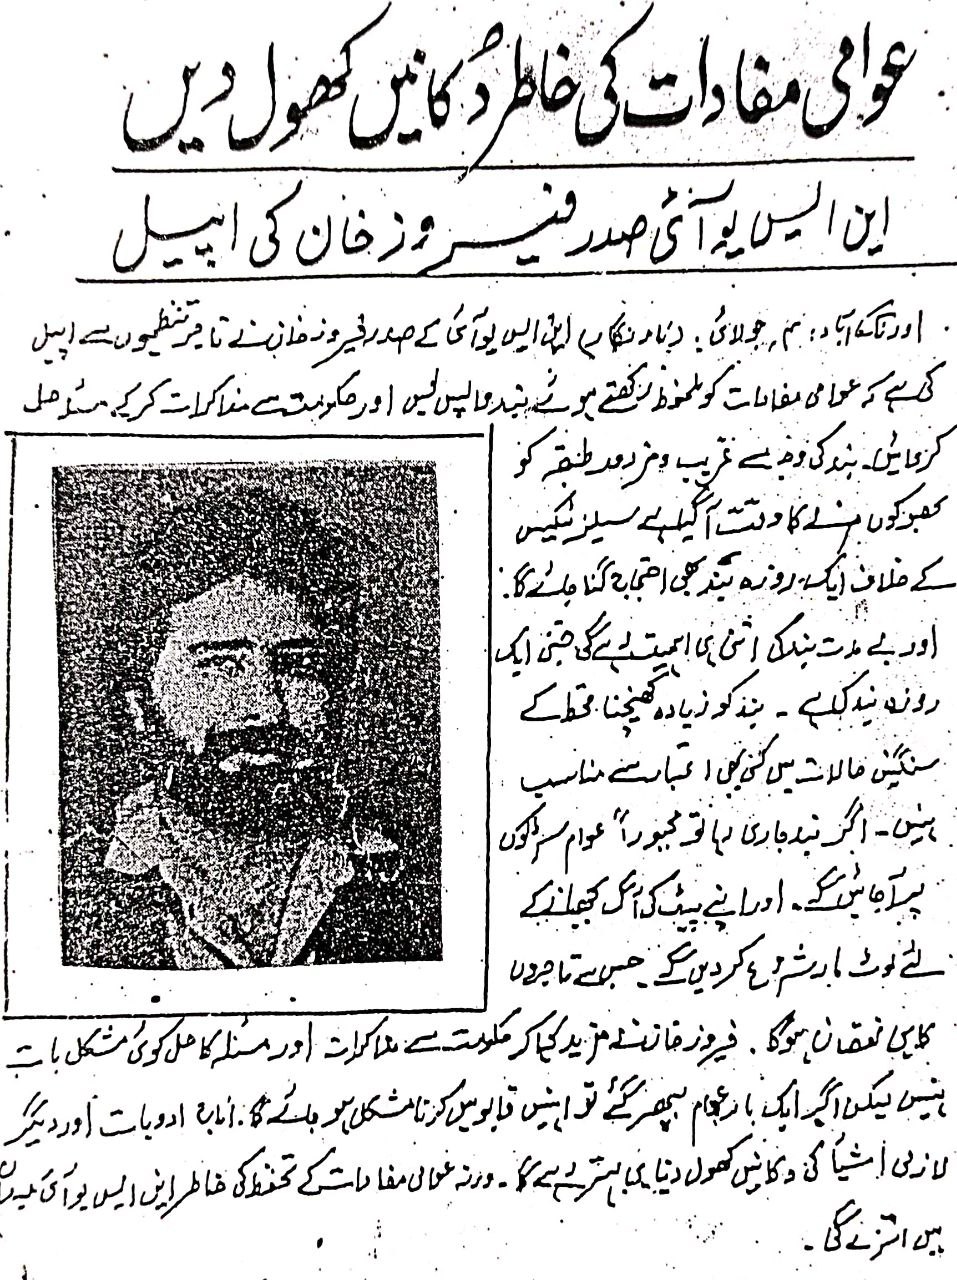 عوامی مفادات کی خاطر دُکانیں کھول دیں
این ایس یو آئی صدر فیروز خان کی اپیل
اورنگ آباد: ۴ جولائی۔ (نامہ نگار) این ایس یو آئی کے صدر فیروز خان نے تاجر تنظیموں سے اپیل
کی ہے کہ عوامی مفادات کو ملحوظ رکھتے ہوئے بند واپس لیں اور حکومت سے مذاکرات کر کے مسئلہ حل
کروائیں۔ بند کی وجہ سے غریب و مزدور طبقہ کو
بھوکوں مرنے کا وقت آگیا ہے سیلز ٹیکس
کے خلاف ایک روزہ بند بھی احتجاج گنا جائے گا۔
اور بے مدت بند کی اتنی ہی اہمیت رہے گی جتنی ایک
روزہ بند کی ہے ۔ بند کو زیادہ کھینچنا قحط کے
سنگین حالات میں کسی بھی اعتبار سے مناسب
نہیں۔ اگر بند جاری رہا تو مجبوراً عوام سڑکوں
پر آجائیں گے۔ اور اپنے پیٹ کی آگ بجھانے کے
لئے لوٹ مار شروع کردیں گے۔ جس سے تاجروں
کا ہی نقصان ہوگا ۔ فیروز خان نے مزید کہا کہ حکومت سے مذاکرات اور مسئلہ کا حل کوئی مشکل بات
نہیں لیکن اگر ایک بار عوام بپھر گئے تو انہیں قابو میں کرنا مشکل ہو جائے گا۔ اناج ادویات اور دیگر
لازمی اشیاء کی دکانیں کھول دینا ہی بہتر رہے گا ۔ ورنہ عوامی مفادات کے تحفظ کی خاطر این ایس یو آئی میدان
میں اترے گی ۔